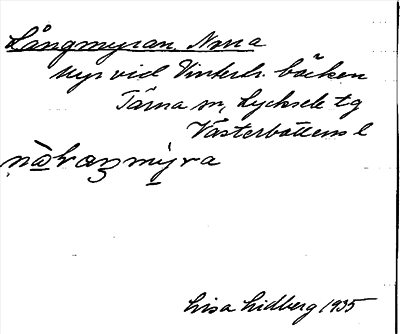 Långmyran, Norra
myr vid Vinterh. bäcken
Tärna sn, Lycksele tg
Västerbottens l
Lisa Lidberg 1935